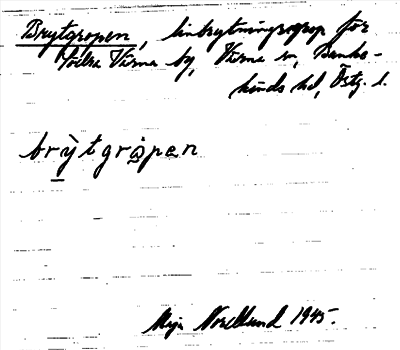 Brytgropen, linbrytningsgrop för
Södra Värna by, Värna sn, Banke-
kinds hd, Östg. l.
brỳtgrȧpen
Maja Nordlund 1945.